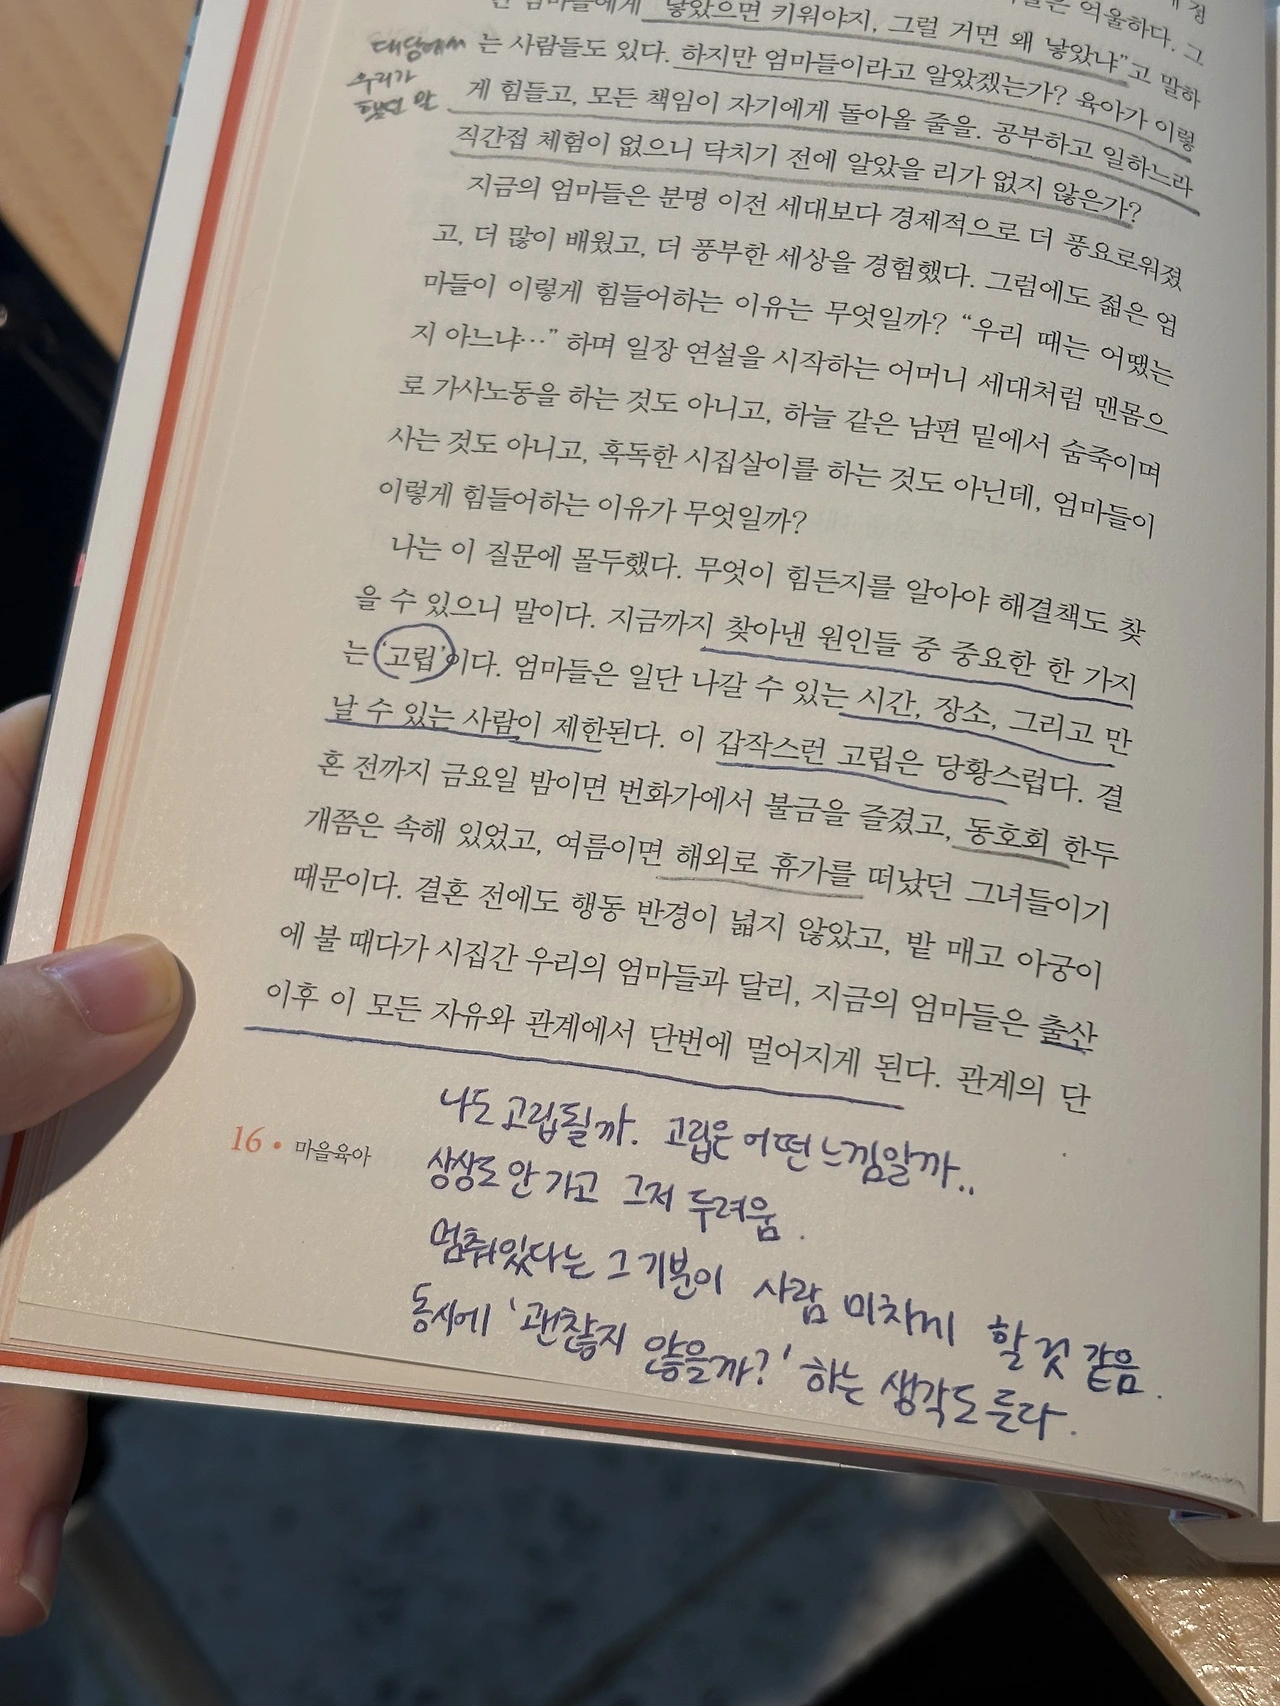 은 억울하다. 그
엄마들에게 "낳았으면 키워야지, 그럴 거면 왜 낳았냐"고 말하
는 사람들도 있다. 하지만 엄마들이라고 알았겠는가? 육아가 이렇
게 힘들고, 모든 책임이 자기에게 돌아올 줄을. 공부하고 일하느라
직간접 체험이 없으니 닥치기 전에 알았을 리가 없지 않은가?
대담에서
우리가
했던 말
지금의 엄마들은 분명 이전 세대보다 경제적으로 더 풍요로워졌
고, 더 많이 배웠고, 더 풍부한 세상을 경험했다. 그럼에도 젊은 엄
마들이 이렇게 힘들어하는 이유는 무엇일까? "우리 때는 어땠는
지 아느냐…" 하며 일장 연설을 시작하는 어머니 세대처럼 맨몸으
로 가사노동을 하는 것도 아니고, 하늘 같은 남편 밑에서 숨죽이며
사는 것도 아니고, 혹독한 시집살이를 하는 것도 아닌데, 엄마들이
이렇게 힘들어하는 이유가 무엇일까?
나는 이 질문에 몰두했다. 무엇이 힘든지를 알아야 해결책도 찾
을 수 있으니 말이다. 지금까지 찾아낸 원인들 중 중요한 한 가지
는 '고립'이다. 엄마들은 일단 나갈 수 있는 시간, 장소, 그리고 만
날 수 있는 사람이 제한된다. 이 갑작스런 고립은 당황스럽다. 결
혼 전까지 금요일 밤이면 번화가에서 불금을 즐겼고, 동호회 한두
개쯤은 속해 있었고, 여름이면 해외로 휴가를 떠났던 그녀들이기
때문이다. 결혼 전에도 행동 반경이 넓지 않았고, 밭 매고 아궁이
에 불 때다가 시집간 우리의 엄마들과 달리, 지금의 엄마들은 출산
이후 이 모든 자유와 관계에서 단번에 멀어지게 된다. 관계의 단
16 • 마을육아
나도 고립될까. 고립은 어떤 느낌일까..
상상도 안 가고 그저 두려움.
멈춰있다는 그 기분이 사람 미치게 할 것 같음.
동시에 '괜찮지 않을까?' 하는 생각도 든다.